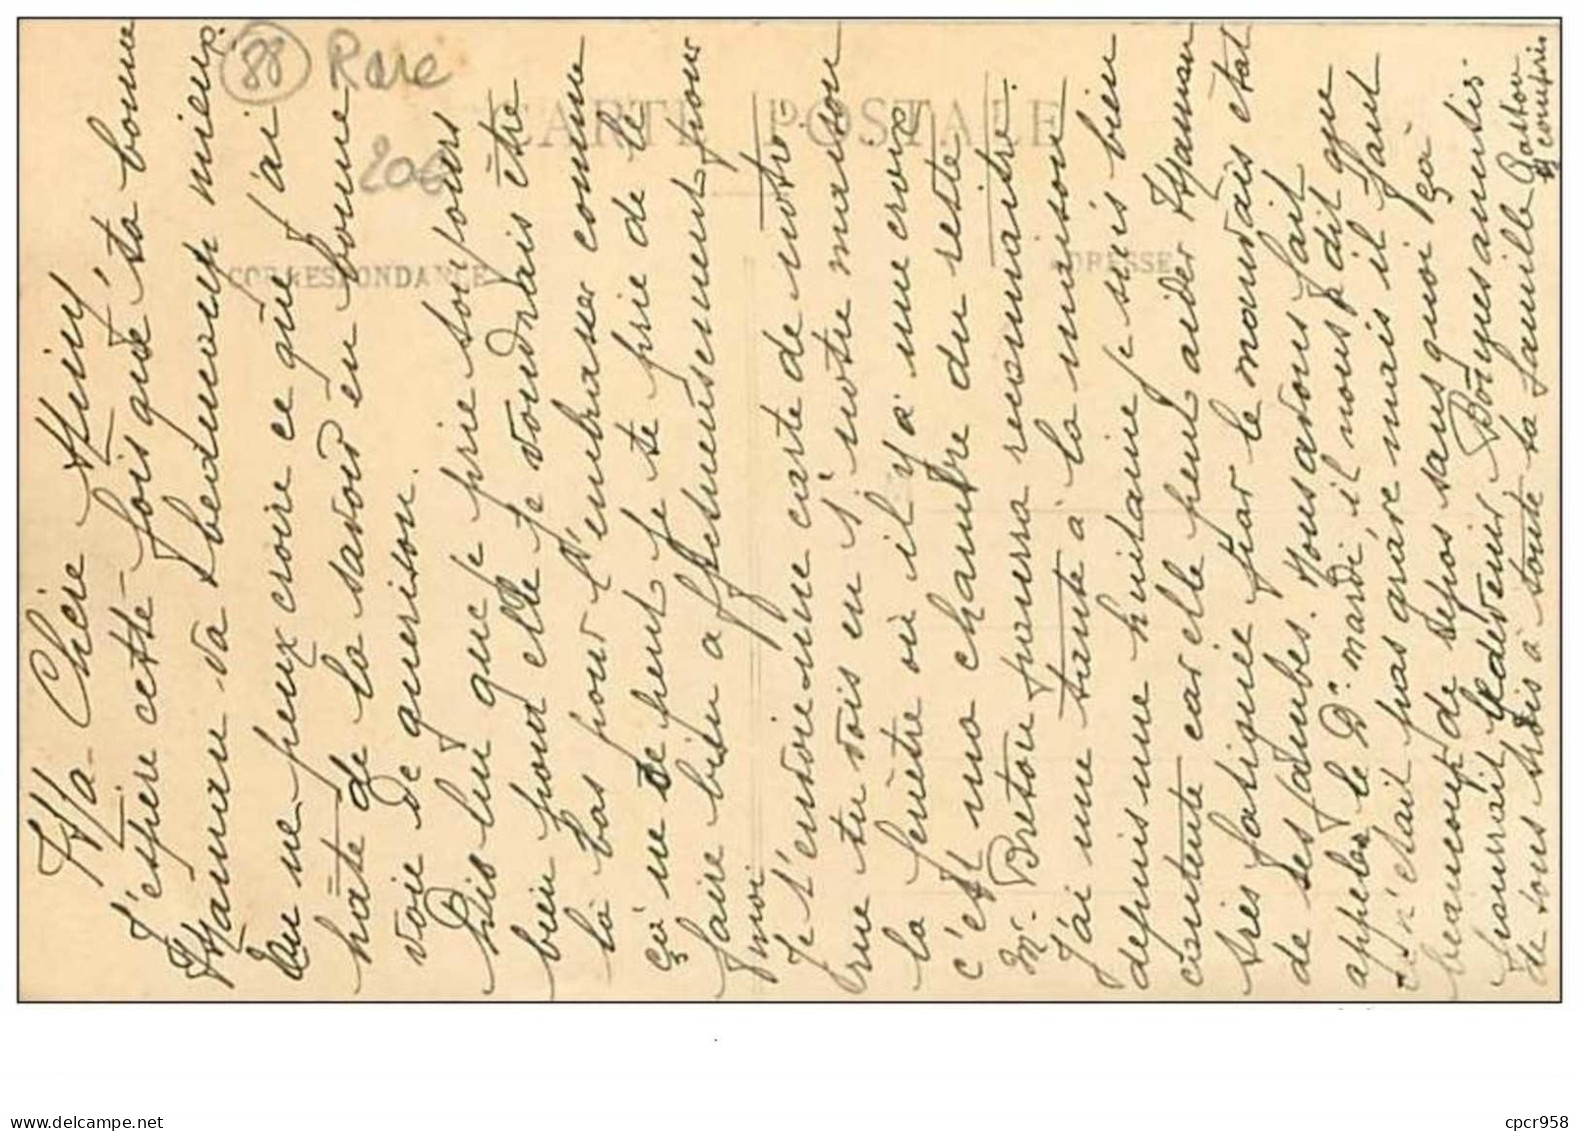 88 Rare
20€
CARTE POSTALE
CORRESPONDANCE
ADRESSE
Ma Chère Mimy
J'espère cette fois que ta bonne
Maman va beaucoup mieux.
Tu ne peux croire ce que j'ai
hâte de la savoir en bonne
voie de guerison.
Dis lui que je prie toujours
bien pour elle je voudrais être
là bas pour l'embrasser comme
çà ne se peut je te prie de le
faire bien affectueusement pour
moi
Je t'envoie une carte de notre
rue tu vois en 1. notre maison
la fenêtre où il y a une croix
c'est ma chambre du reste
Mr. Breton pourra reconnaitre.
J'ai une tante à la maison
depuis une huitaine je suis bien
contente car elle peut aider Maman
très fatiguée par le mauvais état
de ses jambes. Nous avons fait
appeler le Dr. mardi, il nous a dit que
ce n'était pas grave mais il faut
beaucoup de repos sans quoi çà
pourrait le devenir. Bonnes amitiés
de tous trois à toute ta famille
compris
cpcr958